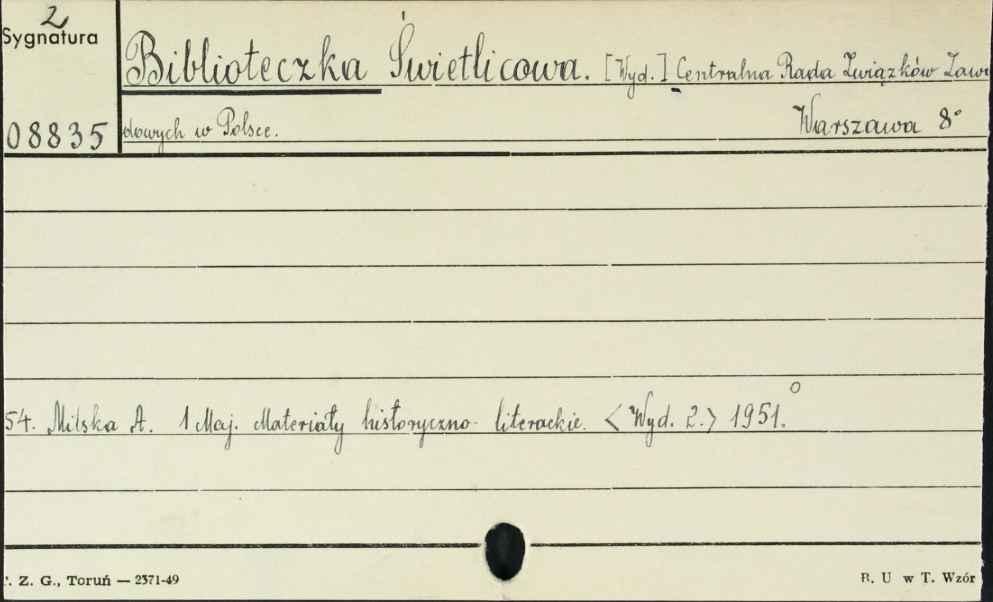 2
Sygnatura
Biblioteczka Świetlicowa. [Wyd.] Centralna Rada Związków Zawo
08835 dowych w Polsce. Warszawa 8°
54. Milska A. 1 Maj. Materiały historyczno-literackie. <Wyd. 2.> 1951.
. Z. G., Toruń — 2371-49
B. U w T. Wzór